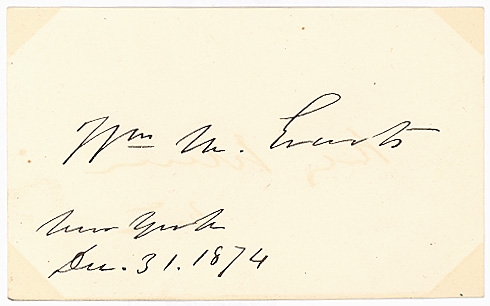 Wm M. Evarts
New York
Dec. 31. 1874